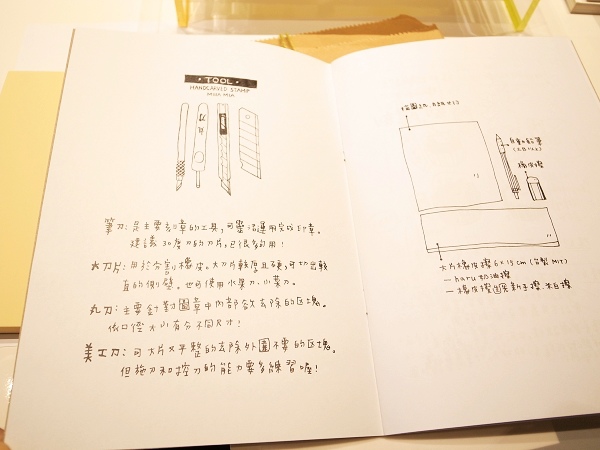 TOOL
HANDCARVED STAMP
筆刀：是主要刻章的工具，可靈活運用完成印章。
建議30度刀的刀片，已很多的用！
大刀片：用於分割橡皮。大刀片較厚且硬，可切出較
直的側壁。也可使用水果刀、小菜刀。
丸刀：主要針對圖章中內部欲去除的区塊。
依口徑大小有分不同尺寸！
美工刀：可大片又平整的去除外圍不要的区塊。
但施刀和控刀的能力要多練習喔！
描圖紙
自動鉛筆
橡皮擦
大片橡皮擦 6×15 cm
— haru 奶油擦